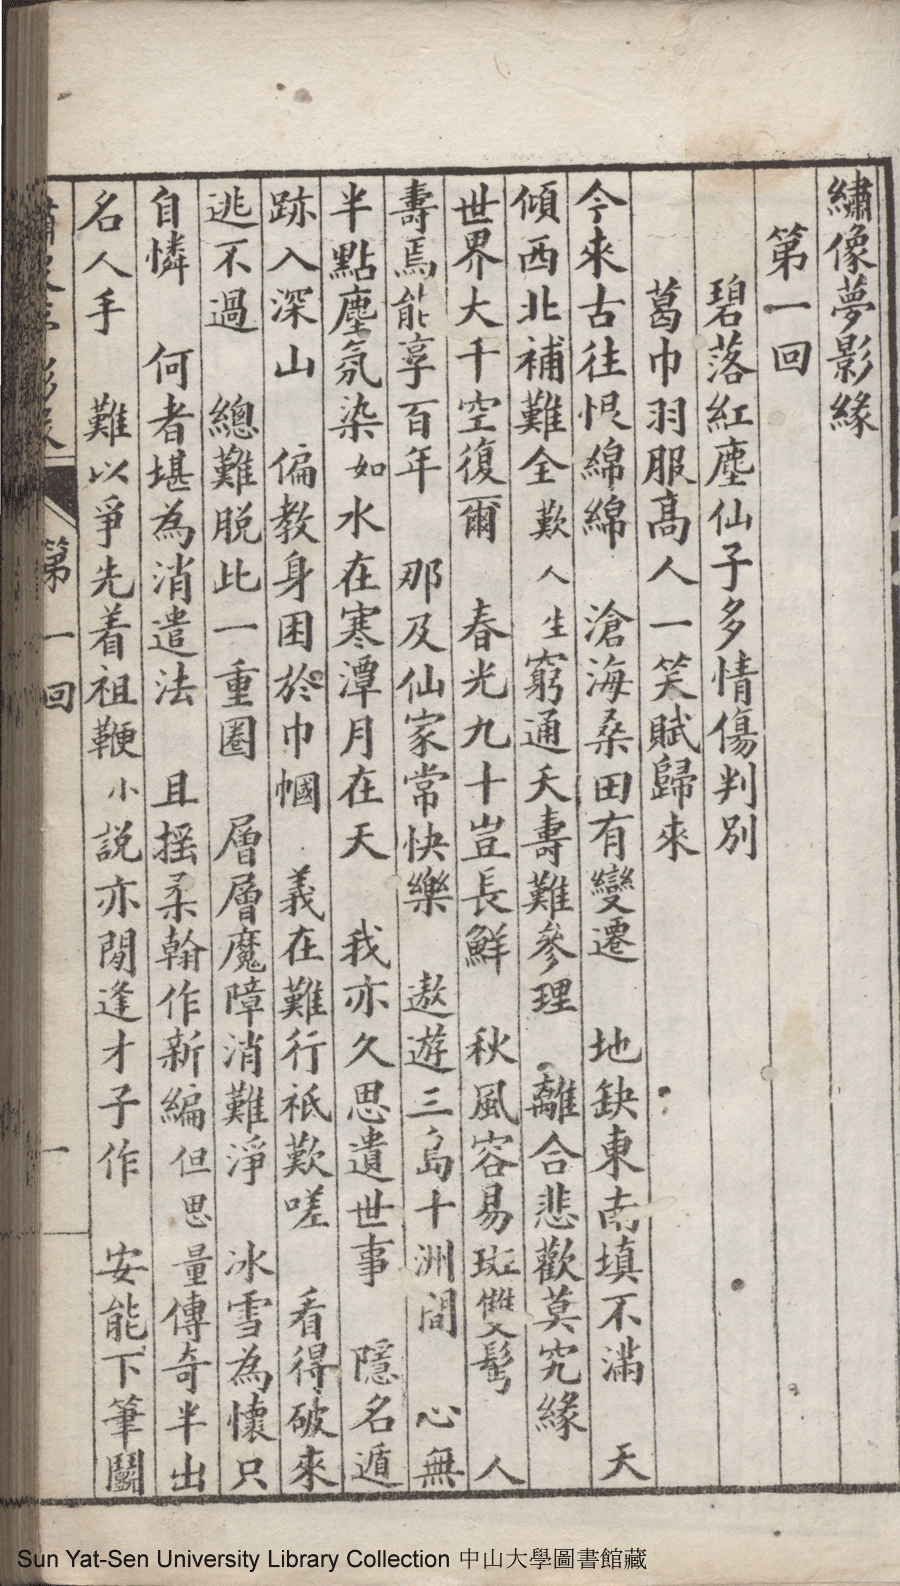 繡像夢影緣
第一回
碧落紅塵仙子多情傷判別
葛巾羽服高人一笑賦歸來
今來古往恨綿綿　滄海桑田有變遷　地缺東南填不滿　天
傾西北補難全歎人生窮通夭壽難參理　離合悲歡莫究緣
世界大千空復爾　春光九十豈長鮮　秋風容易斑雙髩　人
壽焉能享百年　那及仙家常快樂　遨遊三島十洲間　心無
半點塵氛染如水在寒潭月在天　我亦久思遺世事　隱名遁
跡入深山　偏教身困於巾幗　義在難行祇歎嗟　看得破來
逃不過　總難脫此一重圈　層層魔障消難淨　冰雪為懷只
自憐　何者堪為消遣法　且搖柔翰作新編但思量傳奇半出
名人手　難以爭先着祖鞭小說亦閒逢才子作　安能下筆鬭
第一回
一
Sun Yat-Sen University Library Collection 中山大學圖書館藏